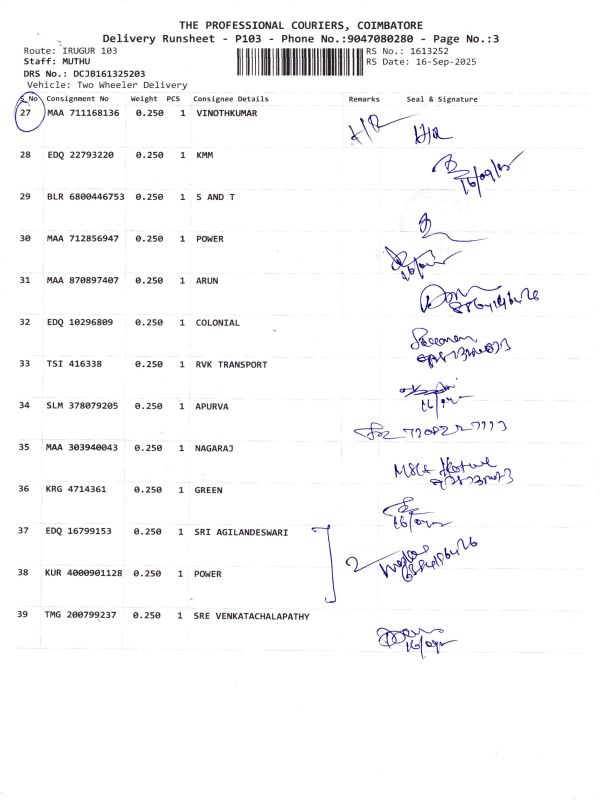 THE PROFESSIONAL COURIERS, COIMBATORE
Delivery Runsheet - P103 - Phone No.:9047080280 - Page No.:3
Route: IRUGUR 103 RS No.: 1613252
Staff: MUTHU RS Date: 16-Sep-2025
DRS No.: DCJB161325203
Vehicle: Two Wheeler Delivery
S.No Consignment No Weight PCS Consignee Details Remarks Seal & Signature
27 MAA 711168136 0.250 1 VINOTHKUMAR
28 EDQ 22793220 0.250 1 KMM
29 BLR 6800446753 0.250 1 S AND T
30 MAA 712856947 0.250 1 POWER
31 MAA 870897407 0.250 1 ARUN
32 EDQ 10296809 0.250 1 COLONIAL
33 TSI 416338 0.250 1 RVK TRANSPORT
34 SLM 378079205 0.250 1 APURVA
35 MAA 303940043 0.250 1 NAGARAJ
36 KRG 4714361 0.250 1 GREEN
37 EDQ 16799153 0.250 1 SRI AGILANDESWARI
38 KUR 4000901128 0.250 1 POWER
39 TMG 200799237 0.250 1 SRE VENKATACHALAPATHY